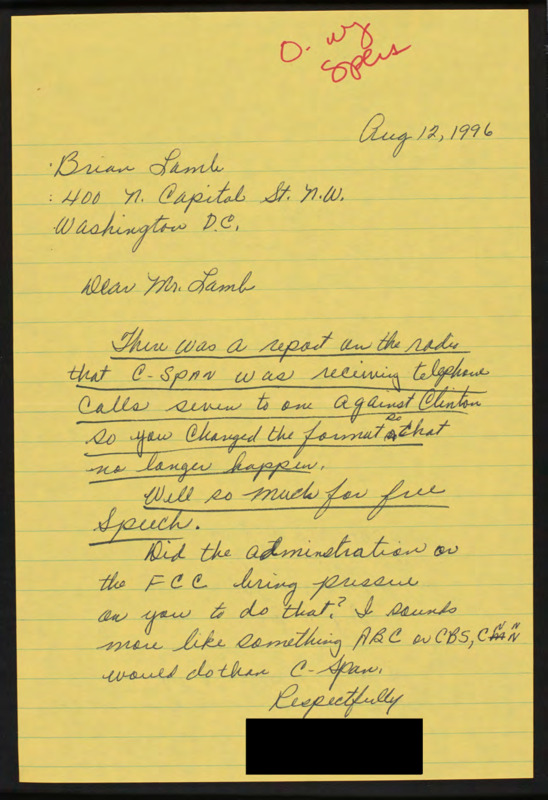 Aug 12, 1996
Brian Lamb
400 N. Capital St. N.W.
Washington D.C.
Dear Mr. Lamb
There was a report on the radio
that C-SPAN was receiving telephone
Calls seven to one against Clinton
so you changed the format so that
no longer happen.
Well so much for free
Speech.
Did the adminstration or
the FCC bring pressure
on you to do that? I sounds
more like something ABC or CBS, CNN
would do than C-Span.
Respectfully